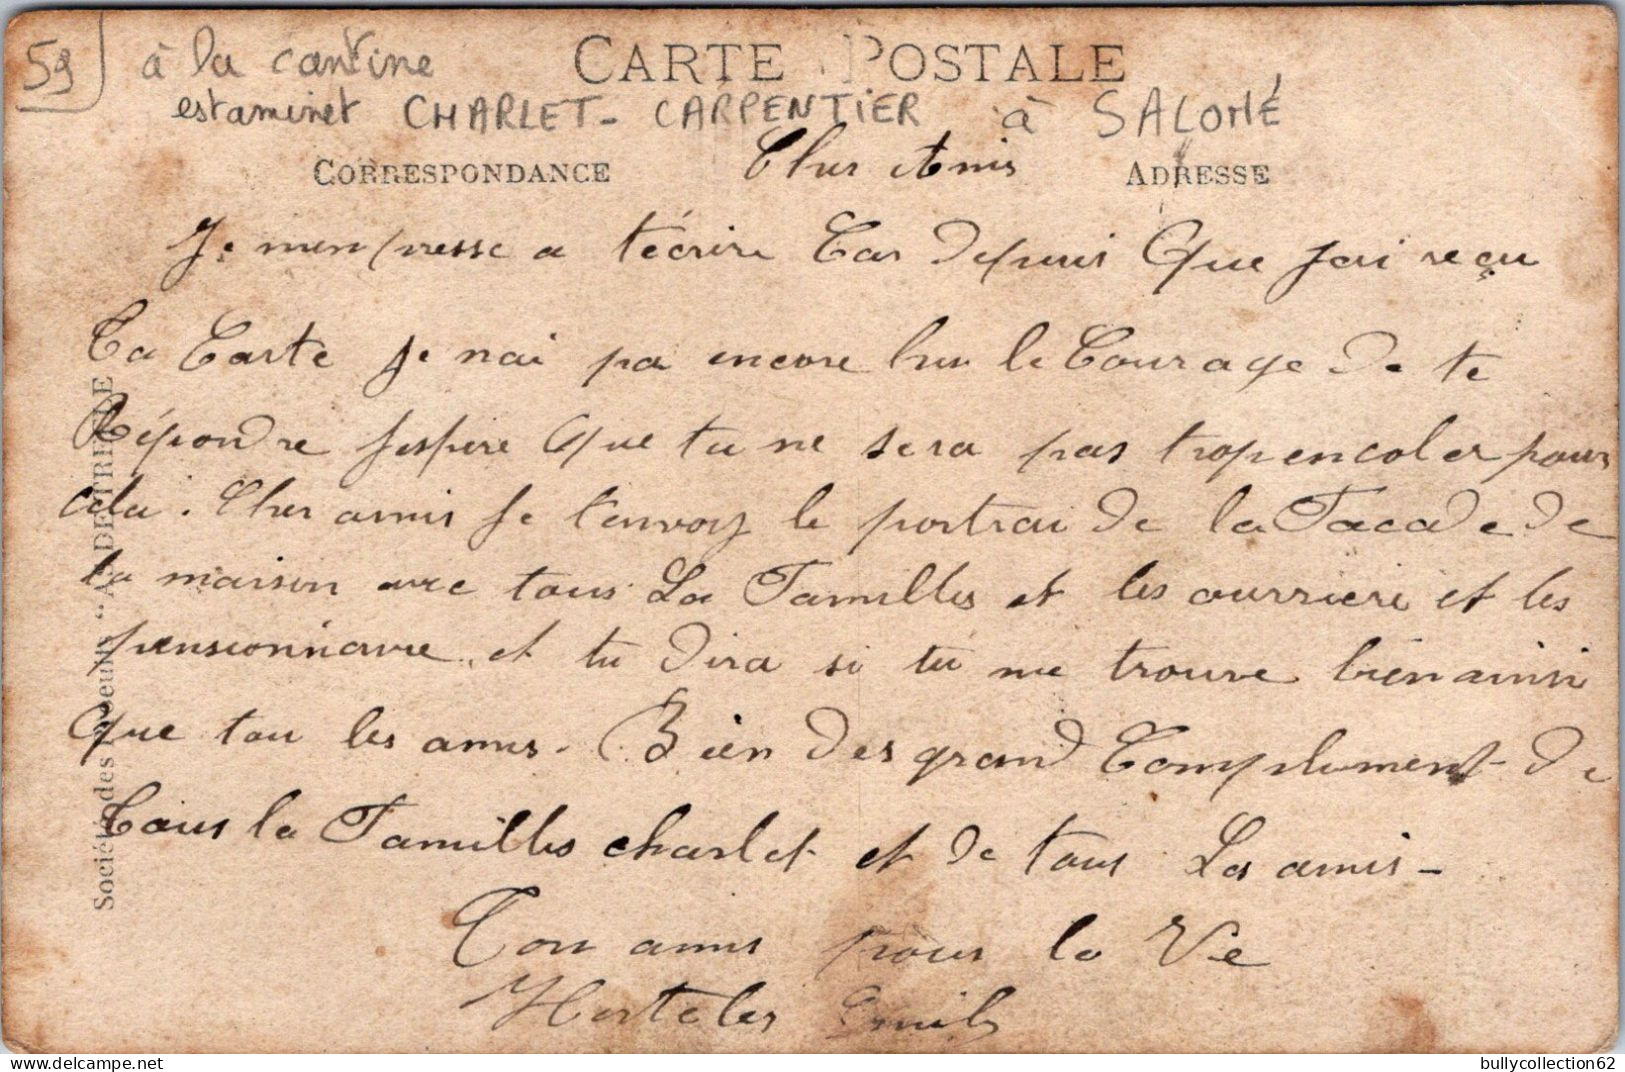 59
à la cantine
CARTE POSTALE
estaminet CHARLET-CARPENTIER à SALOMÉ
Cher Amis
CORRESPONDANCE
ADRESSE
Je menpresse a técrire Car depuis Que jai reçu
Ta Carte je nai pa encore hu le Courage De te
Répondre jespére Que tu ne sera pas trop encoler pour
cela. Cher amis je tenvoy le portrai De la Facade De
la maison avec tous La Familles et les ourriere et les
pensionnaire et tu Dira si tu me trouve bien ainsi
Que tou les amis. Bien Des grand Complument De
Tous la Familles charlet et de tous Les amis-
Ton amis pour la Vie
Emile
Société des
bullycollection62